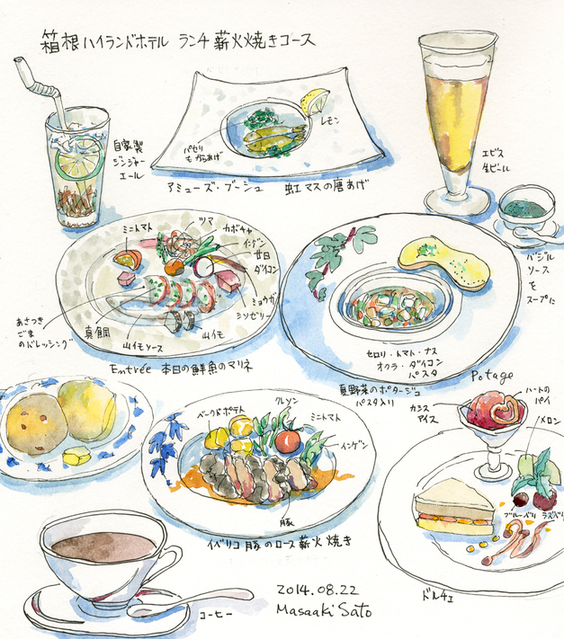 箱根ハイランドホテル ランチ 薪火焼きコース
自家製
ジンジャー
エール
パセリ
もからあげ
レモン
アミューズ・ブーシュ 虹マスの唐あげ
エビス
生ビール
バジル
ソース
を
スープに
ミニトマト
ツマ
カボチャ
インゲン
廿日
ダイコン
ミョウガ
ミソゼリー
あさつき
ごまの
ドレッシング
真鯛
山イモソース
山イモ
Entrée 本日の鮮魚のマリネ
セロリ・トマト・ナス
オクラ・ダイコン
パスタ
夏野菜のポタージュ
パスタ入り
Potage
ベークドポテト
クレソン
ミニトマト
インゲン
豚
イベリコ豚のロース薪火焼き
カシス
アイス
ハートの
パイ
メロン
ブルーベリー
ラズベリー
ドルチェ
コーヒー
2014.08.22
Masaaki Sato